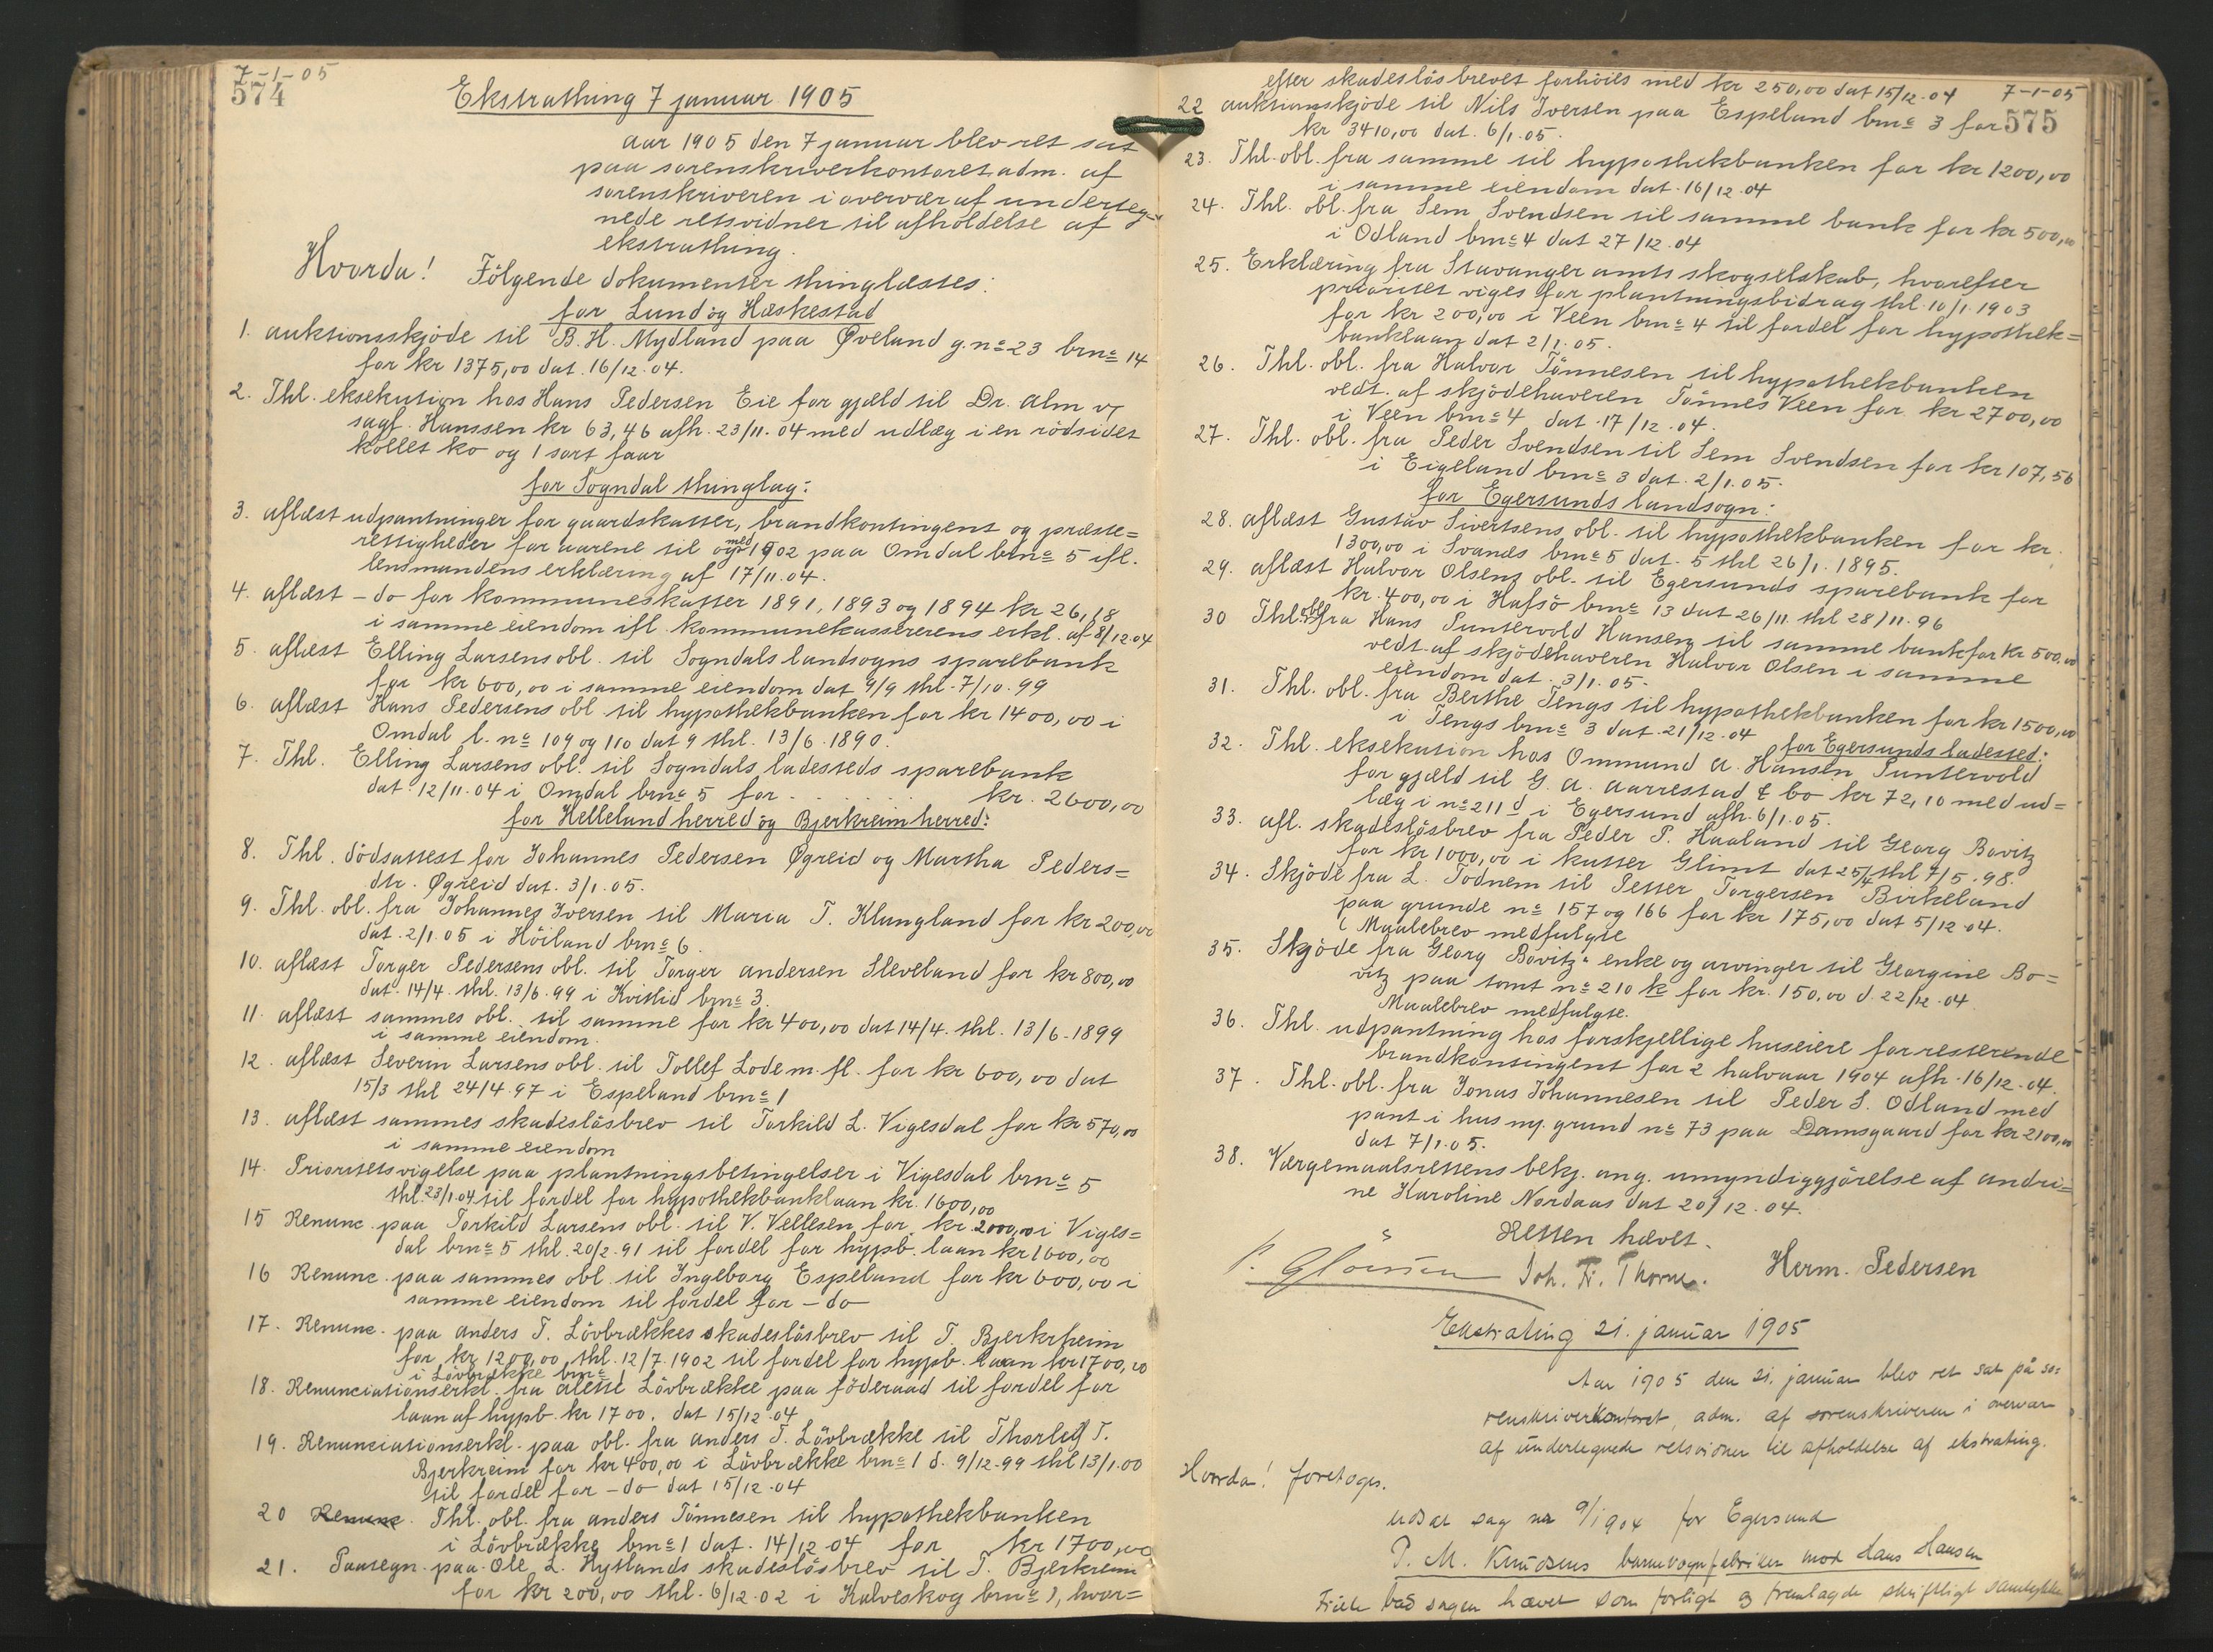 7-1-05
574
Ekstrathing 7 januar 1905
aar 1905 den 7 januar blev ret sat
paa sorenskriverkontoret adm. af
sorenskriveren i overvær af underteg-
nede retsvidner til afholdelse af
ekstrathing.
Hvorda! Fölgende dokumenter thinglæstes:
for Lund og Heskestad
1. auktionsskjöde til B. H. Mydland paa Øveland g. no 23 brno 14
for kr 1375,00 dat. 16/12.04.
2. Thl. eksekution hos Hans Pedersen Eie for gjæld til Dr. Alm v/
sagf. Hanssen kr 63,46 afh. 23/11.04 med udlæg i en rödsidet
kollet ko og 1 sort faar
for Sogndal thinglag:
3. aflæst udpantninger for gaardskatter, brandkontingent og præste=
rettigheder for aarene til og med 1902 paa Omdal brno 5 ifl.
lensmandens erklæring af 17/11.04.
4. aflæst - do for kommuneskatter 1891, 1893 og 1894 kr 26,18
i samme eiendom ifl. kommunekassererens erkl. af 8/12.04
5. aflæst Elling Larsens obl. til Sogndals landsogns sparebank
for kr 600,00 i samme eiendom dat 9/9 thl. 7/10.99
6. aflæst Hans Pedersens obl til hypothekbanken for kr 1400,00 i
Omdal l. no 109 og 110 dat 9 thl. 13/6.1890.
7. Thl. Elling Larsens obl. til Sogndals ladesteds sparebank
dat. 12/11.04 i Omdal brno 5 for . . . . . kr. 2600,00
for Helleland herred og Bjerkreim herred:
8. Thl. dödsattest for Johannes Pedersen Øgreid og Martha Peders=
dtr. Øgreid dat. 3/1.05.
9. Thl. obl. fra Johannes Iversen til Maria T. Klungland for kr 200,00
dat. 2/1.05 i Höiland brno 6.
10. aflæst Torger Pedersens obl. til Torger andersen Sleveland for kr 800,00
dat. 14/4. thl. 13/6.99 i Kvitlid brno 3.
11. aflæst sammes obl. til samme for kr 400,00 dat 14/4. thl. 13/6.1899
i samme eiendom.
12. aflæst Severin Larsens obl. til Tollef Lode m. fl. for kr 600,00 dat
15/3 thl 24/4 97 i Espeland brno 1
13. aflæst sammes skadeslösbrev til Torkild L. Vigesdal for kr 570,00
i samme eiendom
14. Prioritetsvigelse paa plantningsbetingelser i Vigesdal brno 5
thl. 23/1.04 til fordel for hypothekbanklaan kr. 1600,00
15 Renunc. paa Torkild Larsens obl. til V. Vellesen for kr. 2000,00 i Viges=
dal brno 5 thl. 20/2.91 til fordel for hypb. laan kr 1600,00
16 Renunc. paa sammes obl. til Ingeborg Espeland for kr 600,00 i
samme eiendom til fordel for - do -
17. Renunc. paa anders T. Lövbrækkes skadeslösbrev til T. Bjerkrheim
for kr 1200,00 thl. 12/7.1902 til fordel for hypb. laan kr 1700,00
i Lövbrække brno 1
18. Renunciationserkl. fra alette Lövbrække paa föderaad til fordel for
laan af hypb. kr 1700. dat 15/12.04
19. Renunciationserkl. paa obl. fra anders T. Lövbrække til Thorleif T.
Bjerkreim for kr 400,00 i Lövbrække brno 1 d. 9/12.99 thl 13/1.00
til fordel for - do dat 15/12.04
20 Renunc. Thl. obl. fra anders Tönnesen til hypothekbanken
i Lövbrække brno 1 dat. 14/12 04 for kr 1700,00
21. Paategn. paa Ole L. Hytlands skadeslösbrev til T. Bjerkreim
for kr 200,00 thl. 6/12.02 i Kalveskog brno 1, hvor=
efter skadeslösbrevet forhöies med kr 250,00 dat 15/12.04
7-1-05
575
22 auktionsskjöde til Nils Iversen paa Espeland brno 3 for
kr 3410,00 dat. 6/1.05.
23. Thl. obl. fra samme til hypothekbanken for kr 1200,00
i samme eiendom dat. 16/12.04
24. Thl. obl. fra Sem Svendsen til samme bank for kr 500,00
i Odland brno 4 dat 27/12.04
25. Erklæring fra Stavanger amts skogselskab, hvorefter
prioritet viges for plantningsbidrag thl. 10/1.1903
for kr 200,00 i Veen brno 4 til fordel for hypothek=
banklaan dat 2/1.05.
26. Thl. obl. fra Halvor Tönnesen til hypothekbanken
vedt. af skjödehaveren Tönnes Veen for kr 2700,00
i Veen brno 4 dat. 17/12.04.
27. Thl. obl. fra Peder Svendsen til Sem Svendsen for kr 107,56
i Eigeland brno 3 dat. 2/1.05.
for Egersunds landsogn:
28. aflæst Gustav Sivertsens obl. til hypothekbanken for kr.
1300,00 i Svanæs brno 5 dat. 5 thl 26/1.1895.
29. aflæst Halvor Olsens obl. til Egersunds sparebank for
kr. 400,00 i Hafsö brno 13 dat 26/11 thl 28/11.96
30 Thl. obl. fra Hans Puntervold Hansen til samme bank for kr 500,00
vedt. af skjödehaveren Halvor Olsen i samme
eiendom dat. 3/1.05.
31. Thl. obl. fra Berthe Tengs til hypothekbanken for kr 1500,00
i Tengs brno 3 dat. 21/12.04
for Egersunds ladested:
32. Thl. eksekution hos Ommund A. Hansen Puntervold
for gjæld til G. A. Aarrestad & Co kr 72,10 med ud=
læg i no 211 d i Egersund afh. 6/1.05.
33. afl. skadeslösbrev fra Peder P. Haaland til Georg Bovitz
for kr 1000,00 i kutter Glimt dat 25/4 thl 7/5.98.
34. Skjöde fra L. Todnem til Petter Torgersen Birkeland
paa grunde no 157 og 166 for kr 175,00 dat 5/12.04.
(Maalebrev medfulgte
35. Skjöde fra Georg Bovitz' enke og arvinger til Georgine Bo=
vitz paa tomt no 210 k for kr. 150,00 d. 22/12.04.
Maalebrev medfulgte.
36. Thl. udpantning hos forskjellige huseiere for resterende
brandkontingent for 2 halvaar 1904 afh. 16/12.04.
37. Thl. obl. fra Jonas Johannesen til Peder S. Odland med
pant i hus m. grund no 73 paa Damsgaard for kr 2100,00
dat 7/1.05.
38. Værgemaalsrettens bekj. ang. umyndiggjörelse af andri=
ne Karoline Nordaas dat 20/12.04.
Retten hævet.
Joh. Fr. Thorne. Herm. Pedersen
Ekstrating 21. januar 1905
Aar 1905 den 21. januar blev ret sat på so=
renskriverkontoret, adm. af sorenskriveren i overvær
af undertegnede retsvidner til afholdelse af ekstrating.
Hvorda! foretoges.
udsat sag no 9/1904 for Egersund
P. M. Knudsens barnevognfabriken mod Hans Hansen
bad sagen hævet som forligt og fremlagde skriftligt samtykke